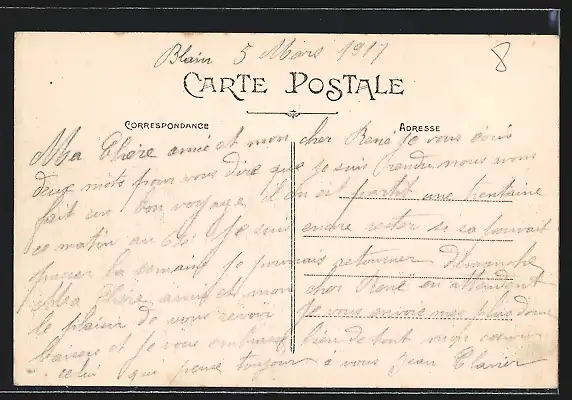 Blain 5 Mars 1917
8
CARTE POSTALE
CORRESPONDANCE
ADRESSE
Ma Chère amie et mon cher Rene je vous écris
deux mots pour vous dire que je suis rendu nous avons
fait un bon voyage il en est partit une trentaine
ce matin au je suis encore rester si sa pouvait
passer la semaine je pourrais retourner dimanche
Ma Chère amie et mon cher René en attendent
le plaisir de vous revoir je vous envoie mes plus doux
baisers et je vous embrasse bien de tout mon coeur
celui qui pense toujour a vous Jean Clavier